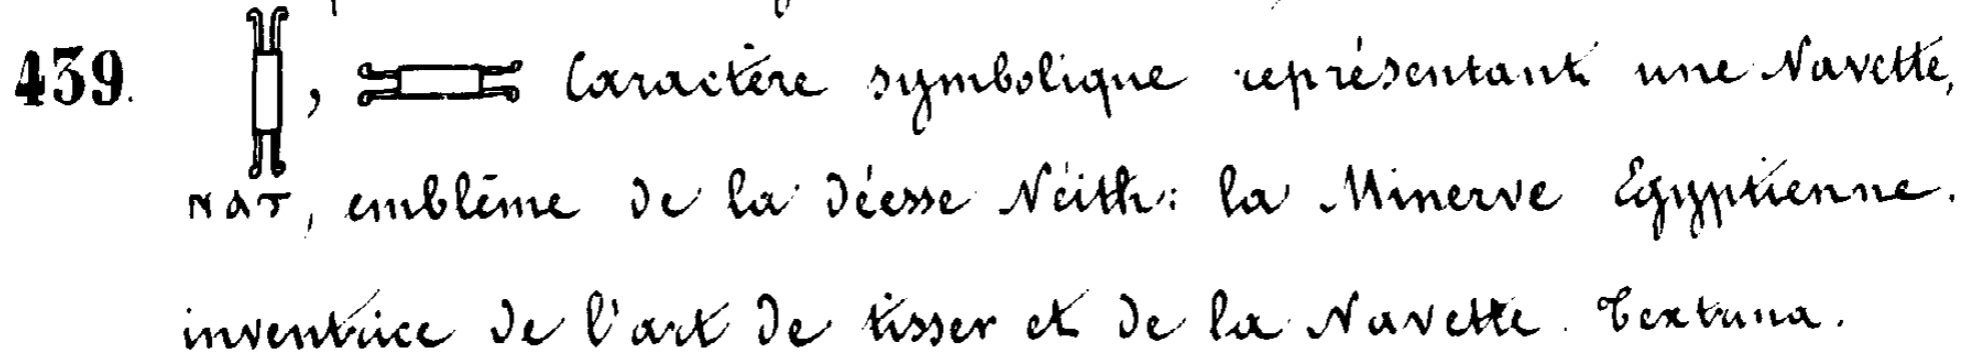 439. , Caractère symbolique représentant une Navette,
ⲚⲀⲦ, emblême de la déesse Néith: la Minerve Egyptienne.
inventrice de l'art de tisser et de la Navette.